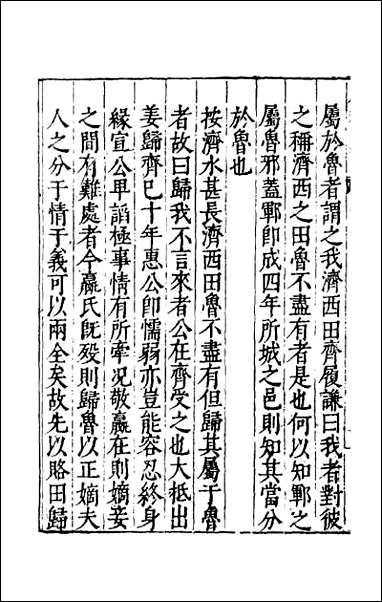 屬於魯者謂之我濟西田齊履謙曰我者對彼
之稱濟西之田魯不盡有者是也何以知鄆之
屬魯邪蓋鄆卽成四年所城之邑則知其當分
於魯也
按濟水甚長濟西田魯不盡有但歸其屬于魯
者故曰歸我不言來者公在齊受之也大抵出
姜歸齊已十年惠公卽懦弱亦豈能容忍終身
緣宣公甲謟極事情有所牽况敬嬴在則嫡妾
之間有難處者今嬴氏旣歿則歸魯以正嫡夫
人之分于情于義可以兩全矣故先以賂田歸